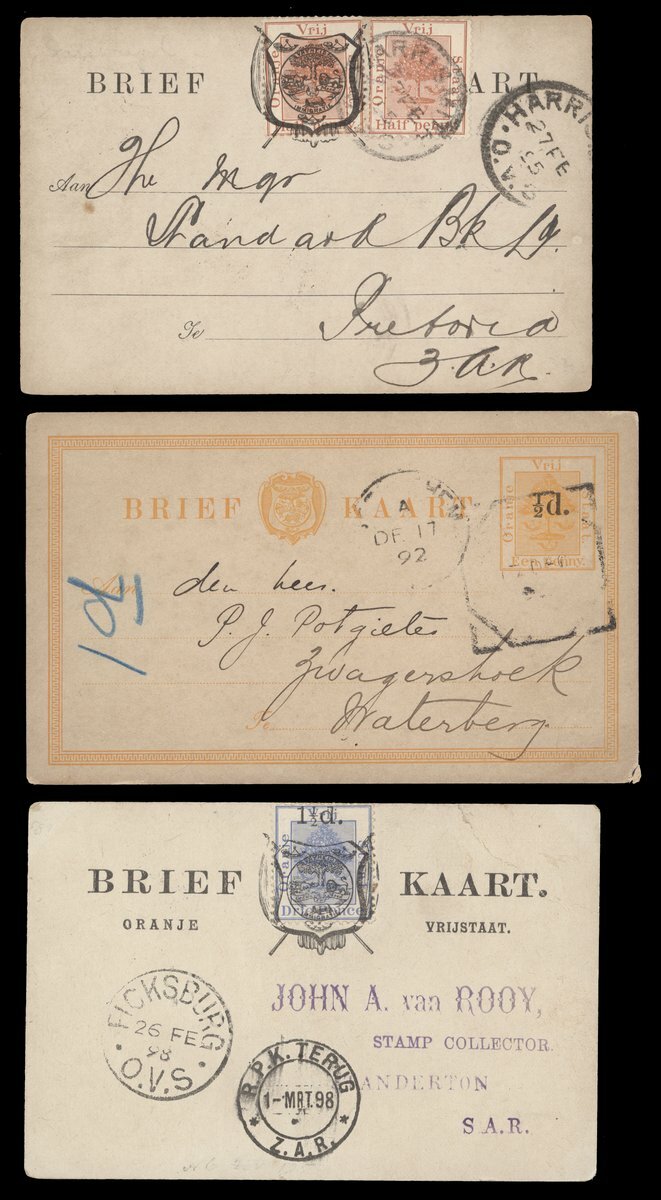 Vrij Vrij
Oranje Oranje Staat
Half penny
BRIEF KAART
HARRISMITH
HARRISMITH
27 FE
95
O.V.S
Aan The Mgr
Standard Bk Ld.
Te Pretoria
Z.A.R.
BRIEF KAART
Vrij
Oranje Staat.
½d.
Een Penny.
A
DE 17
92
1d
Aan den heer.
P. J. Potgieter
Zwagershoek
Te Waterberg
1½d.
Oranje
BRIEF KAART.
ORANJE VRIJSTAAT.
FICKSBURG
26 FE
98
O.V.S.
JOHN A. van ROOY,
STAMP COLLECTOR.
ANDERTON
S.A.R.
R.P.K. TERUG
1-MRT.98
* Z.A.R. *